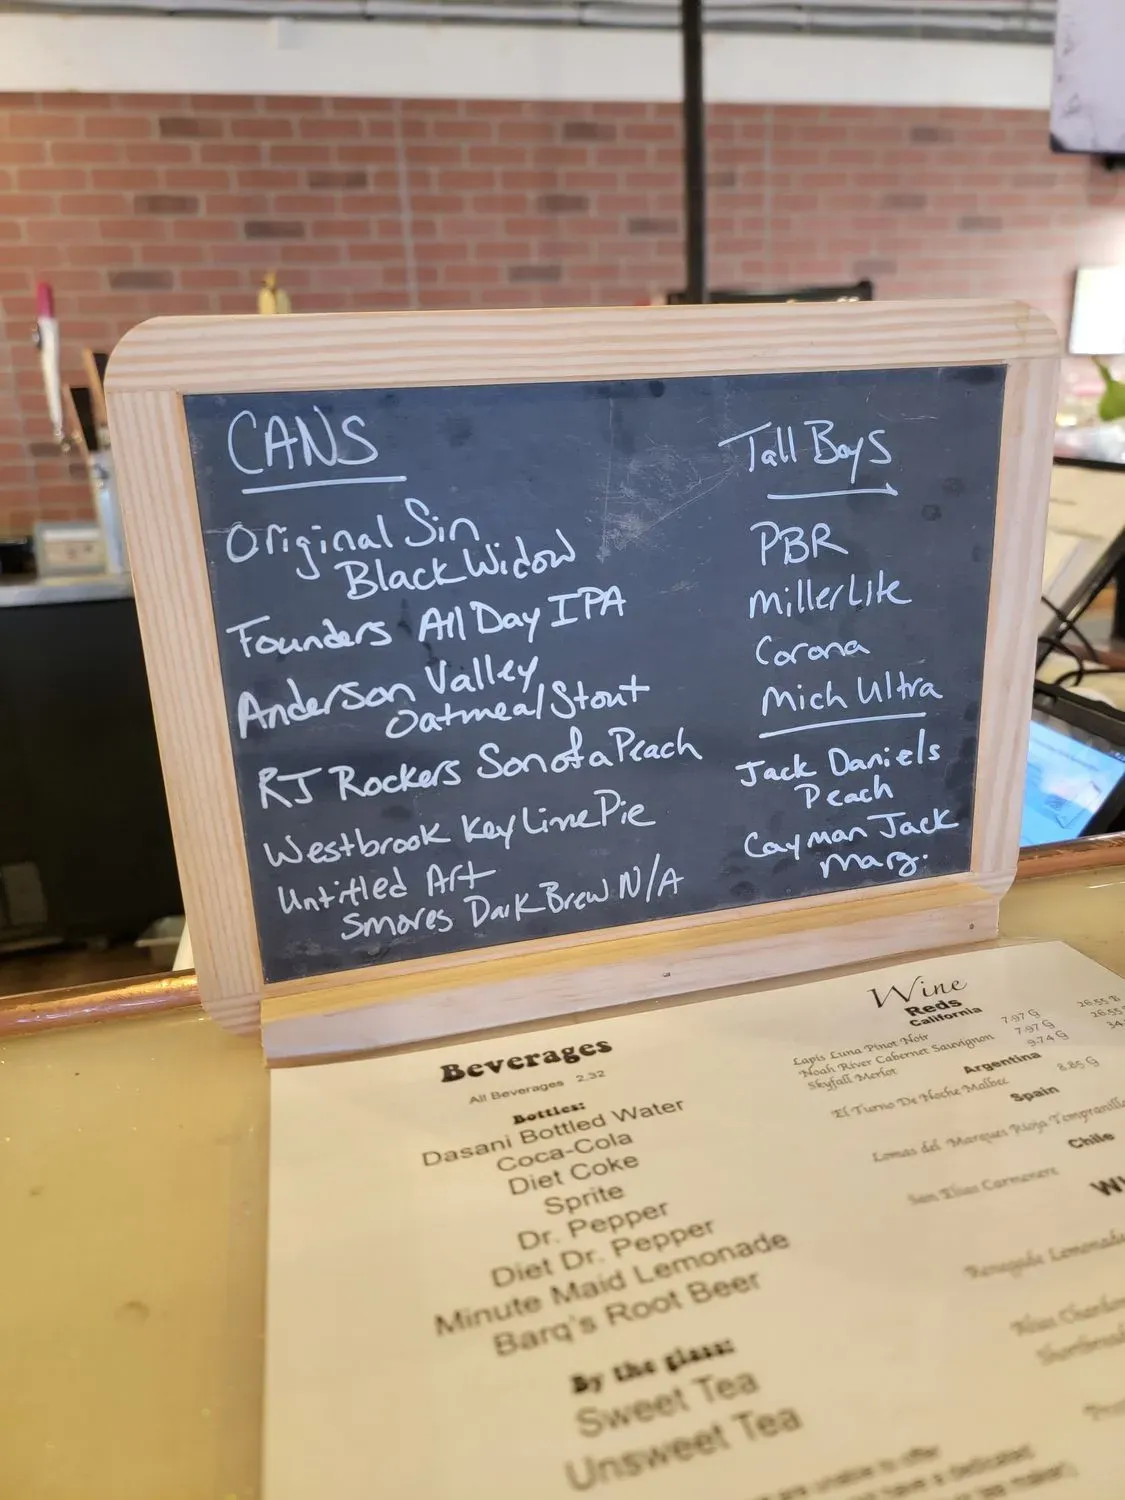 CANS
Original Sin
Black Widow
Founders All Day IPA
Anderson Valley
Oatmeal Stout
RJ Rockers Son of a Peach
Westbrook Key Lime Pie
Untitled Art
Smores Dark Brew N/A
Tall Boys
PBR
Miller Lite
Corona
Mich Ultra
Jack Daniels
Peach
Cayman Jack
Marg.
Beverages
All Beverages 2.32
Bottles:
Dasani Bottled Water
Coca-Cola
Diet Coke
Sprite
Dr. Pepper
Diet Dr. Pepper
Minute Maid Lemonade
Barq's Root Beer
By the glass:
Sweet Tea
Unsweet Tea
are unable to offer
have a dedicated
Wine
Reds
California
Lapis Luna Pinot Noir 7.97 G 26.55 B
Noah River Cabernet Sauvignon 7.97 G 26.55
Skyfall Merlot 9.74 G 34.
Argentina
El Turno De Noche Malbec 8.85 G
Spain
Lomas del Marques Rioja Tempranillo
Chile
San Elias Carmenere
Renegade Lemonade